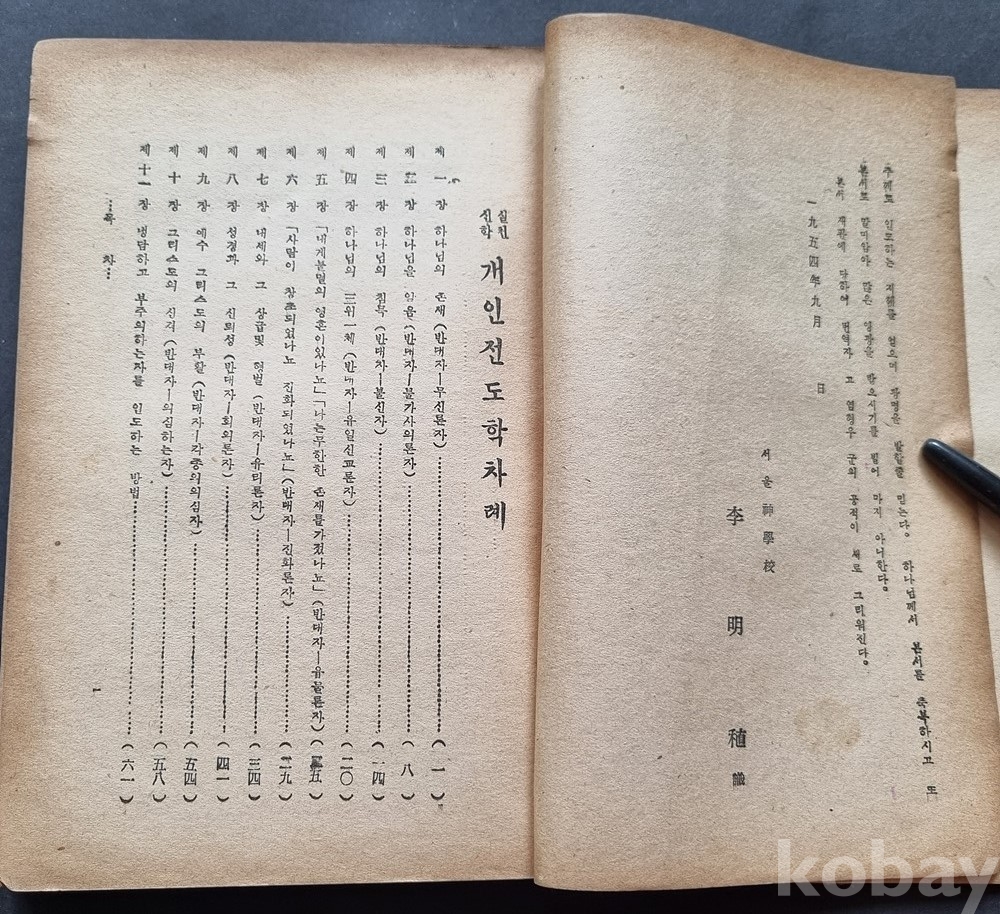 주께로 인도하는 지혜를 얻으며 광명을 발할줄 믿는다。 하나님께서 본서를 축복하시고 또
본서로 말미암아 많은 영광을 받으시기를 빌어 마지 아니한다。
본서 재판에 당하여 번역자 고 염형우 군의 공적이 새로 그리워진다。
一九五四年九月 日
서울神學校
李明稙 識
실천신학 개인전도학차례
제一장 하나님의 존재(반대자—무신론자)……(一)
제二장 하나님을 앎음(반대자—불가사의론자)……(八)
제三장 하나님의 침묵(반대자—불신자)……(一四)
제四장 하나님의 三위一체(반대자—유일신교론자)……(二〇)
제五장 「내게불멸의 영혼이있나뇨」「나는무한한 존재를가졌나뇨」(반대자—유물론자)(二五)
제六장 「사람이 창조되었나뇨 진화되었나뇨」(반대자—진화론자)……(二九)
제七장 내세와 그 상급및 형벌(반대자—유티론자)……(三四)
제八장 성경과 그 신뢰성(반대자—회의론자)……(四一)
제九장 예수 그리스도의 부활(반대자—각종의의심자)……(五四)
제十장 그리스도의 신격(반대자—의심하는자)……(五八)
제十一장 냉담하고 부주의하는자를 인도하는 방법……(六一)
…목 차…
1
kobay